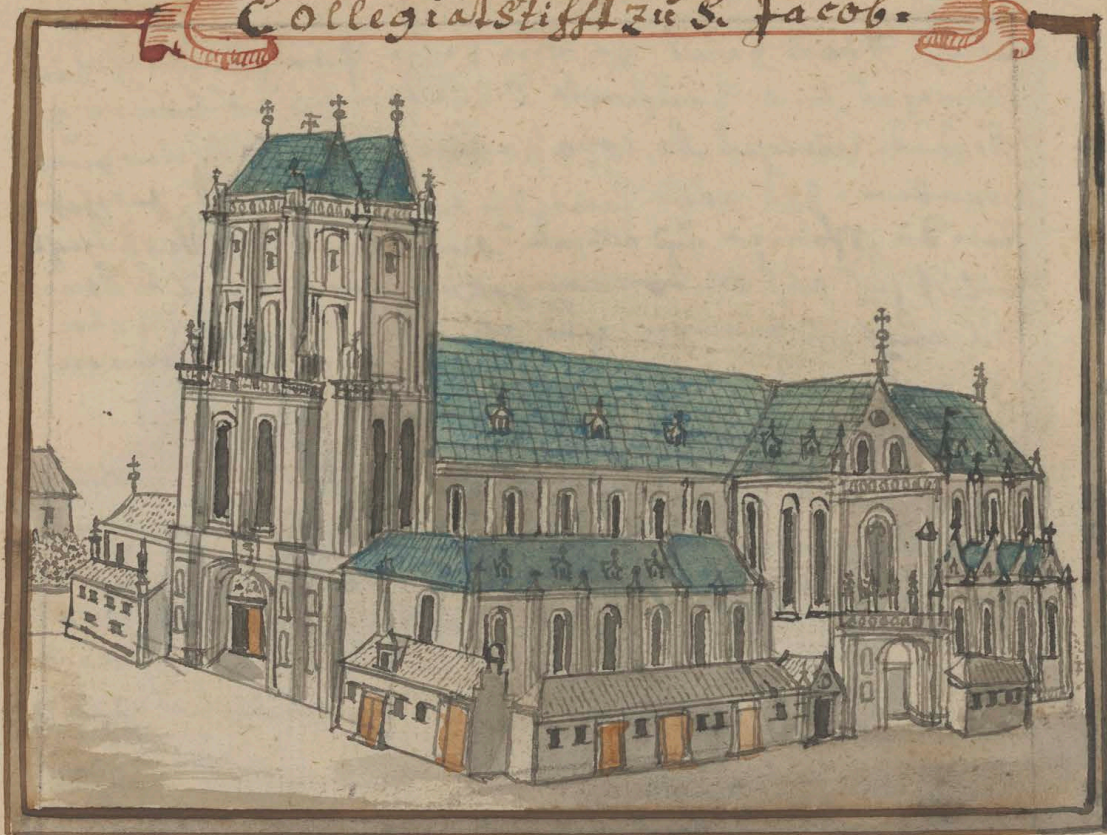 Collegiatstifft zu S. Jacob.